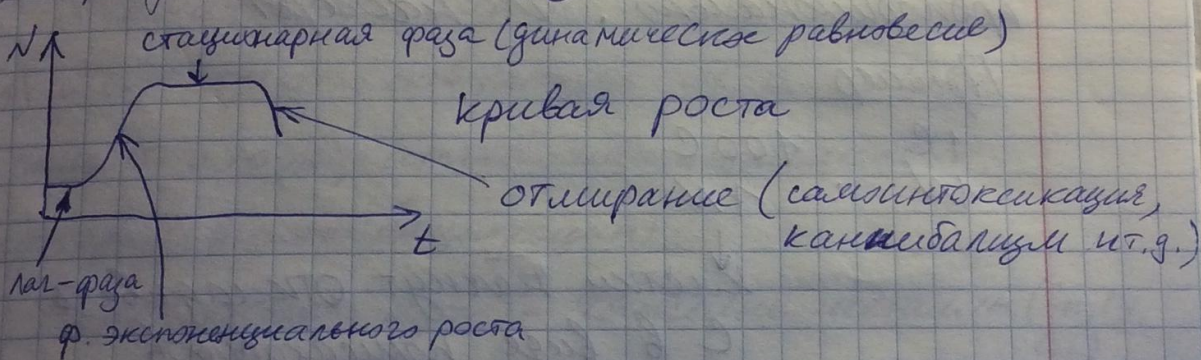 N
стационарная фаза (динамическое равновесие)
кривая роста
отмирание (самоинтоксикация,
каннибализм и т.д.)
t
лаг-фаза
ф. экспоненциального роста